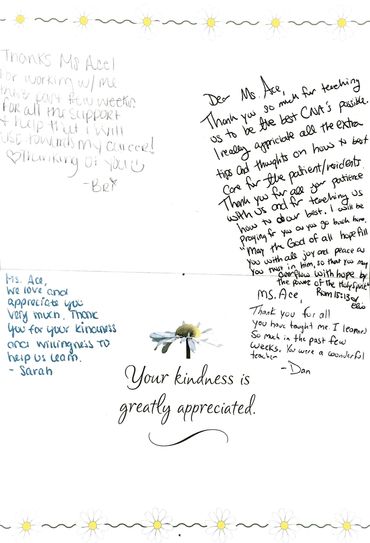 Thanks Ms Ace!
for working w/ me
past few weeks
for all the support
& help that I will
use towards my career!
♡ Thinking of you ☺
- Bri
Dear Ms. Ace,
Thank you so much for teaching
us to be the best CNA's possible.
I really appriciate all the extra
tips and thoughts on how to best
care for the patient/residents
Thank you for all your patience
with us and for teaching us
how to do our best. I will be
praying for you as you go back home.
"May the God of all hope fill
you with all joy and peace as
you trust in him, so that you may
overflow with hope by
the power of the Holy Spirit"
Rom 15:13
Ms. Ace,
We love and
appreciate you
very much. Thank
you for your kindness
and willingness to
help us learn.
- Sarah
Ms. Ace,
Thank you for all
you have taught me I learned
So much in the past few
weeks. You were a wonderful
teacher
- Dan
Your kindness is
greatly appreciated.